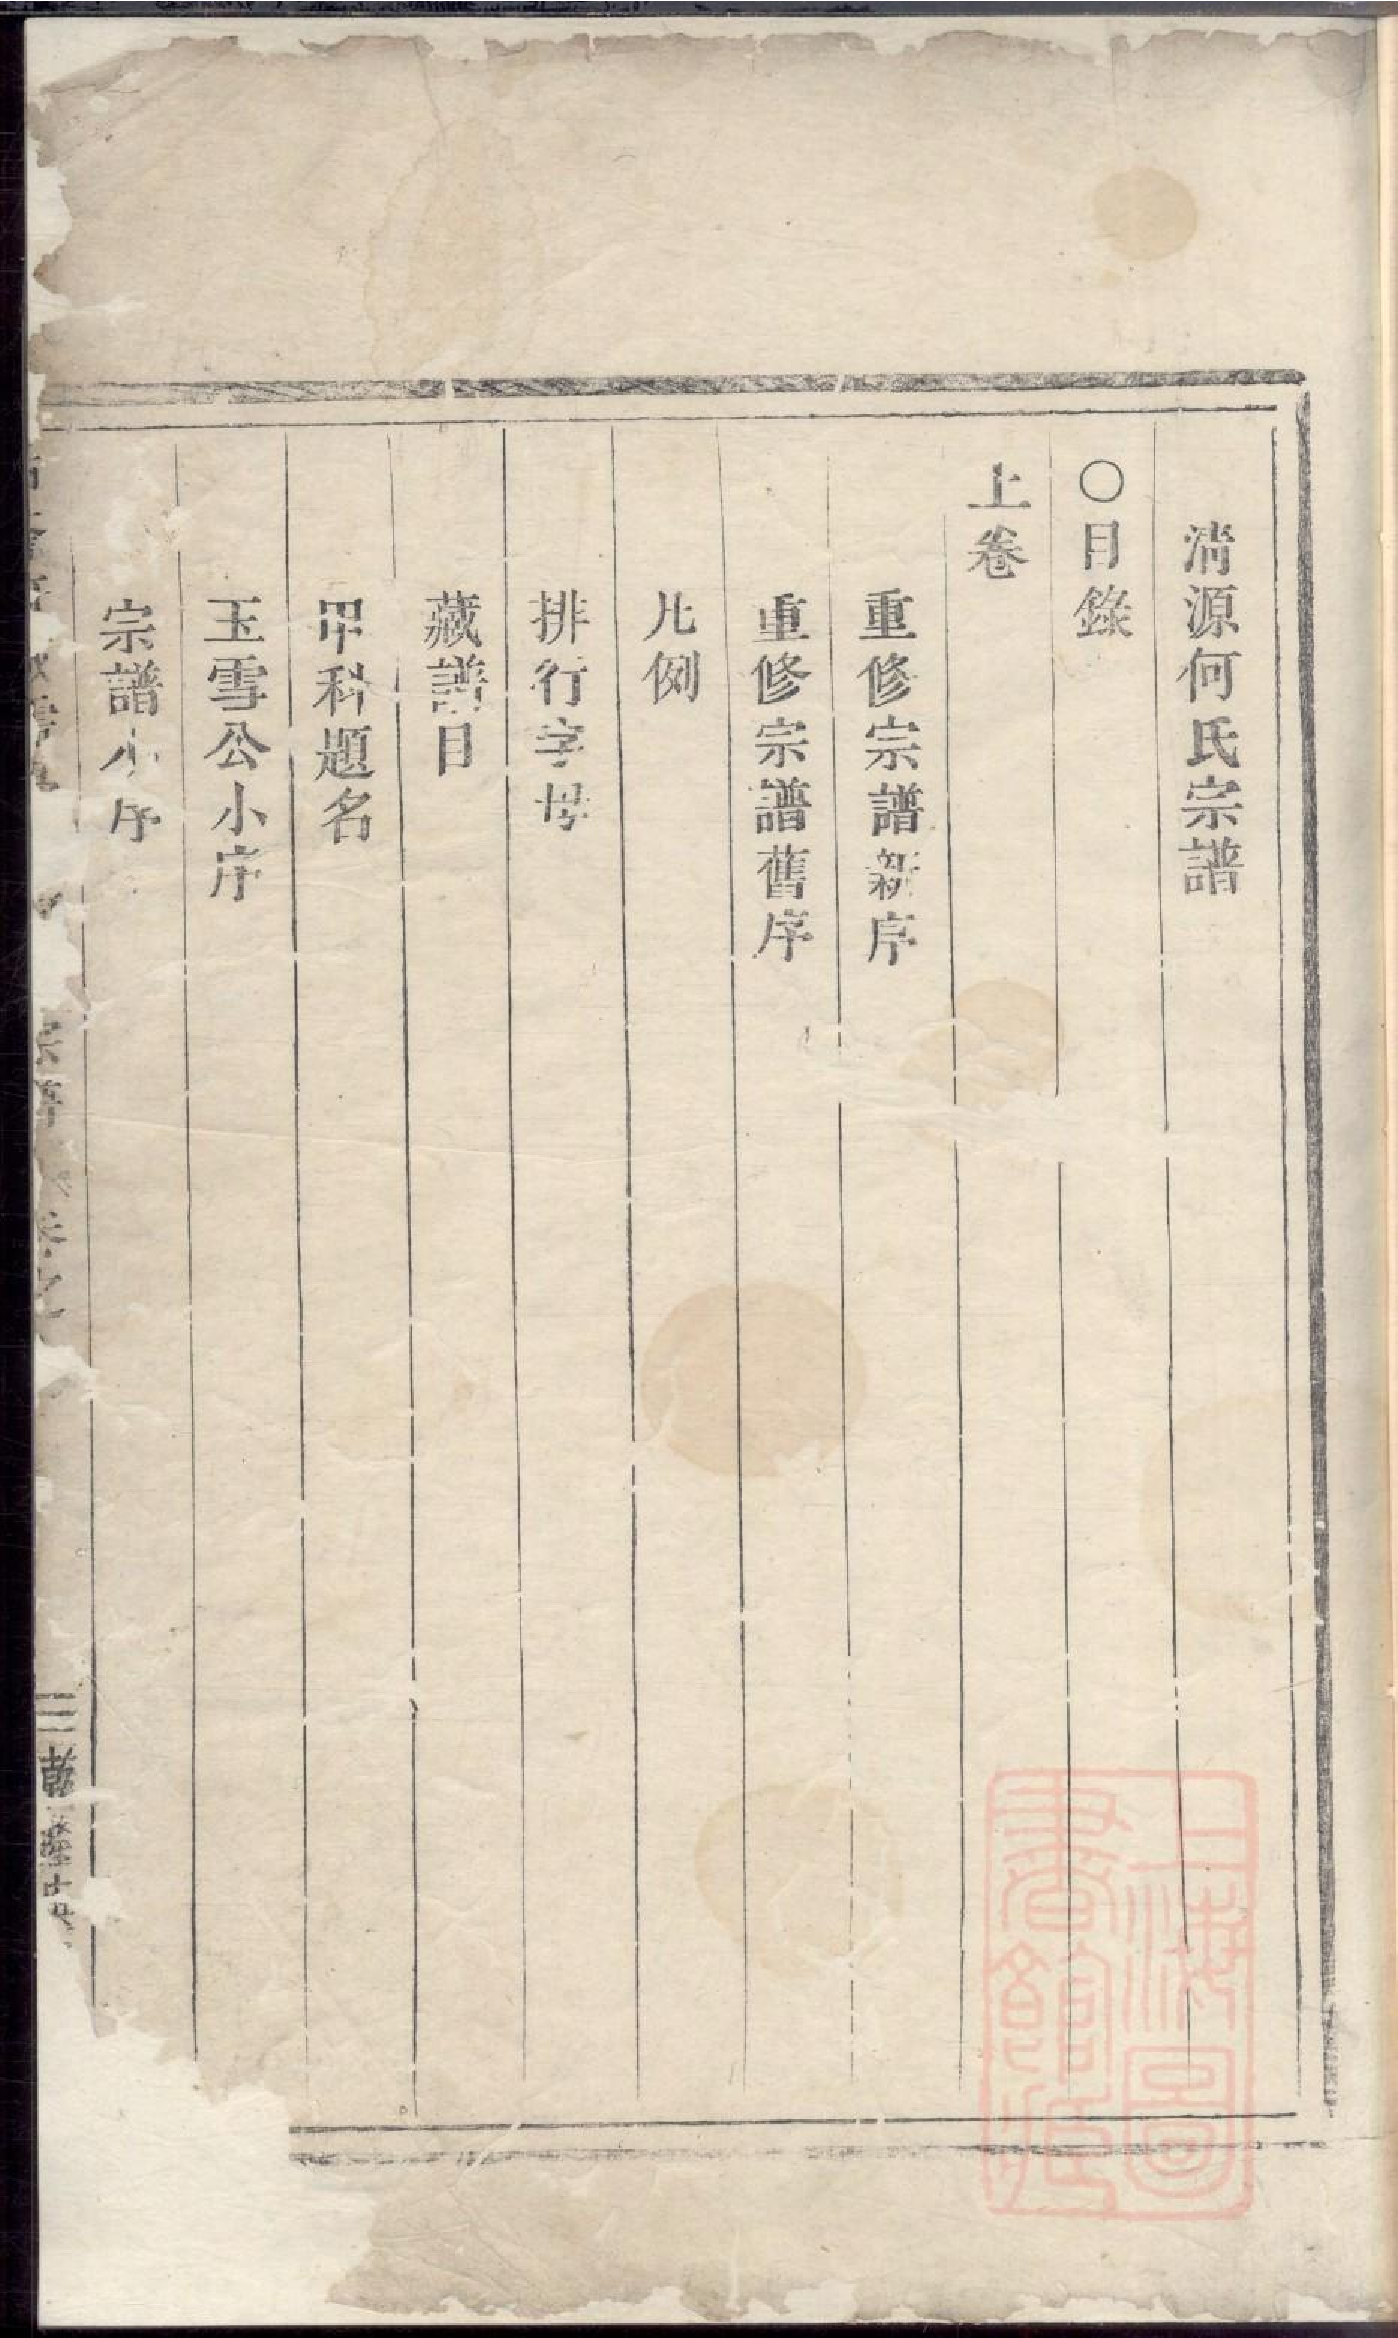 清源何氏宗譜
○目錄
上卷
重修宗譜新序
重修宗譜舊序
凡例
排行字母
藏譜目
甲科題名
玉雪公小序
宗譜小序
三 乾隆
上海圖書館藏